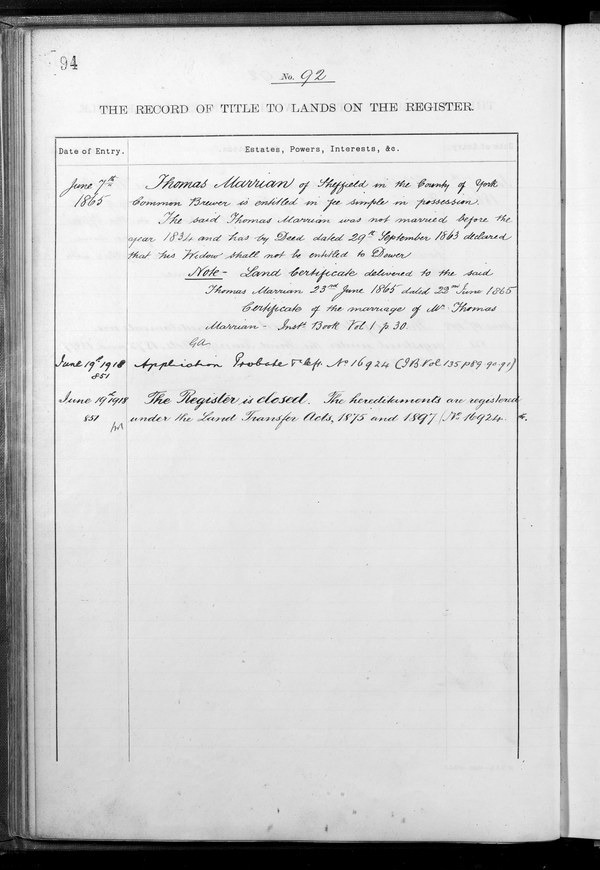 94
No. 92
THE RECORD OF TITLE TO LANDS ON THE REGISTER.
Date of Entry.
Estates, Powers, Interests, &c.
June 7th
1865
Thomas Marrian of Sheffield in the County of York
Common Brewer is entitled in fee simple in possession.
The said Thomas Marrian was not married before the
year 1834 and has by Deed dated 29th September 1863 declared
that his Widow shall not be entitled to Dower
Note - Land Certificate delivered to the said
Thomas Marrian 23rd June 1865 dated 22nd June 1865
Certificate of the marriage of Mr Thomas
Marrian - Instt Book Vol 1 p 30.
GA
June 19th 1918
851
Application Probate & left No 16924 (I B Vol 135 p 89. 90. 91)
June 19th 1918
851
The Register is closed. The hereditaments are registered
under the Land Transfer Acts, 1875 and 1897 (No 16924.